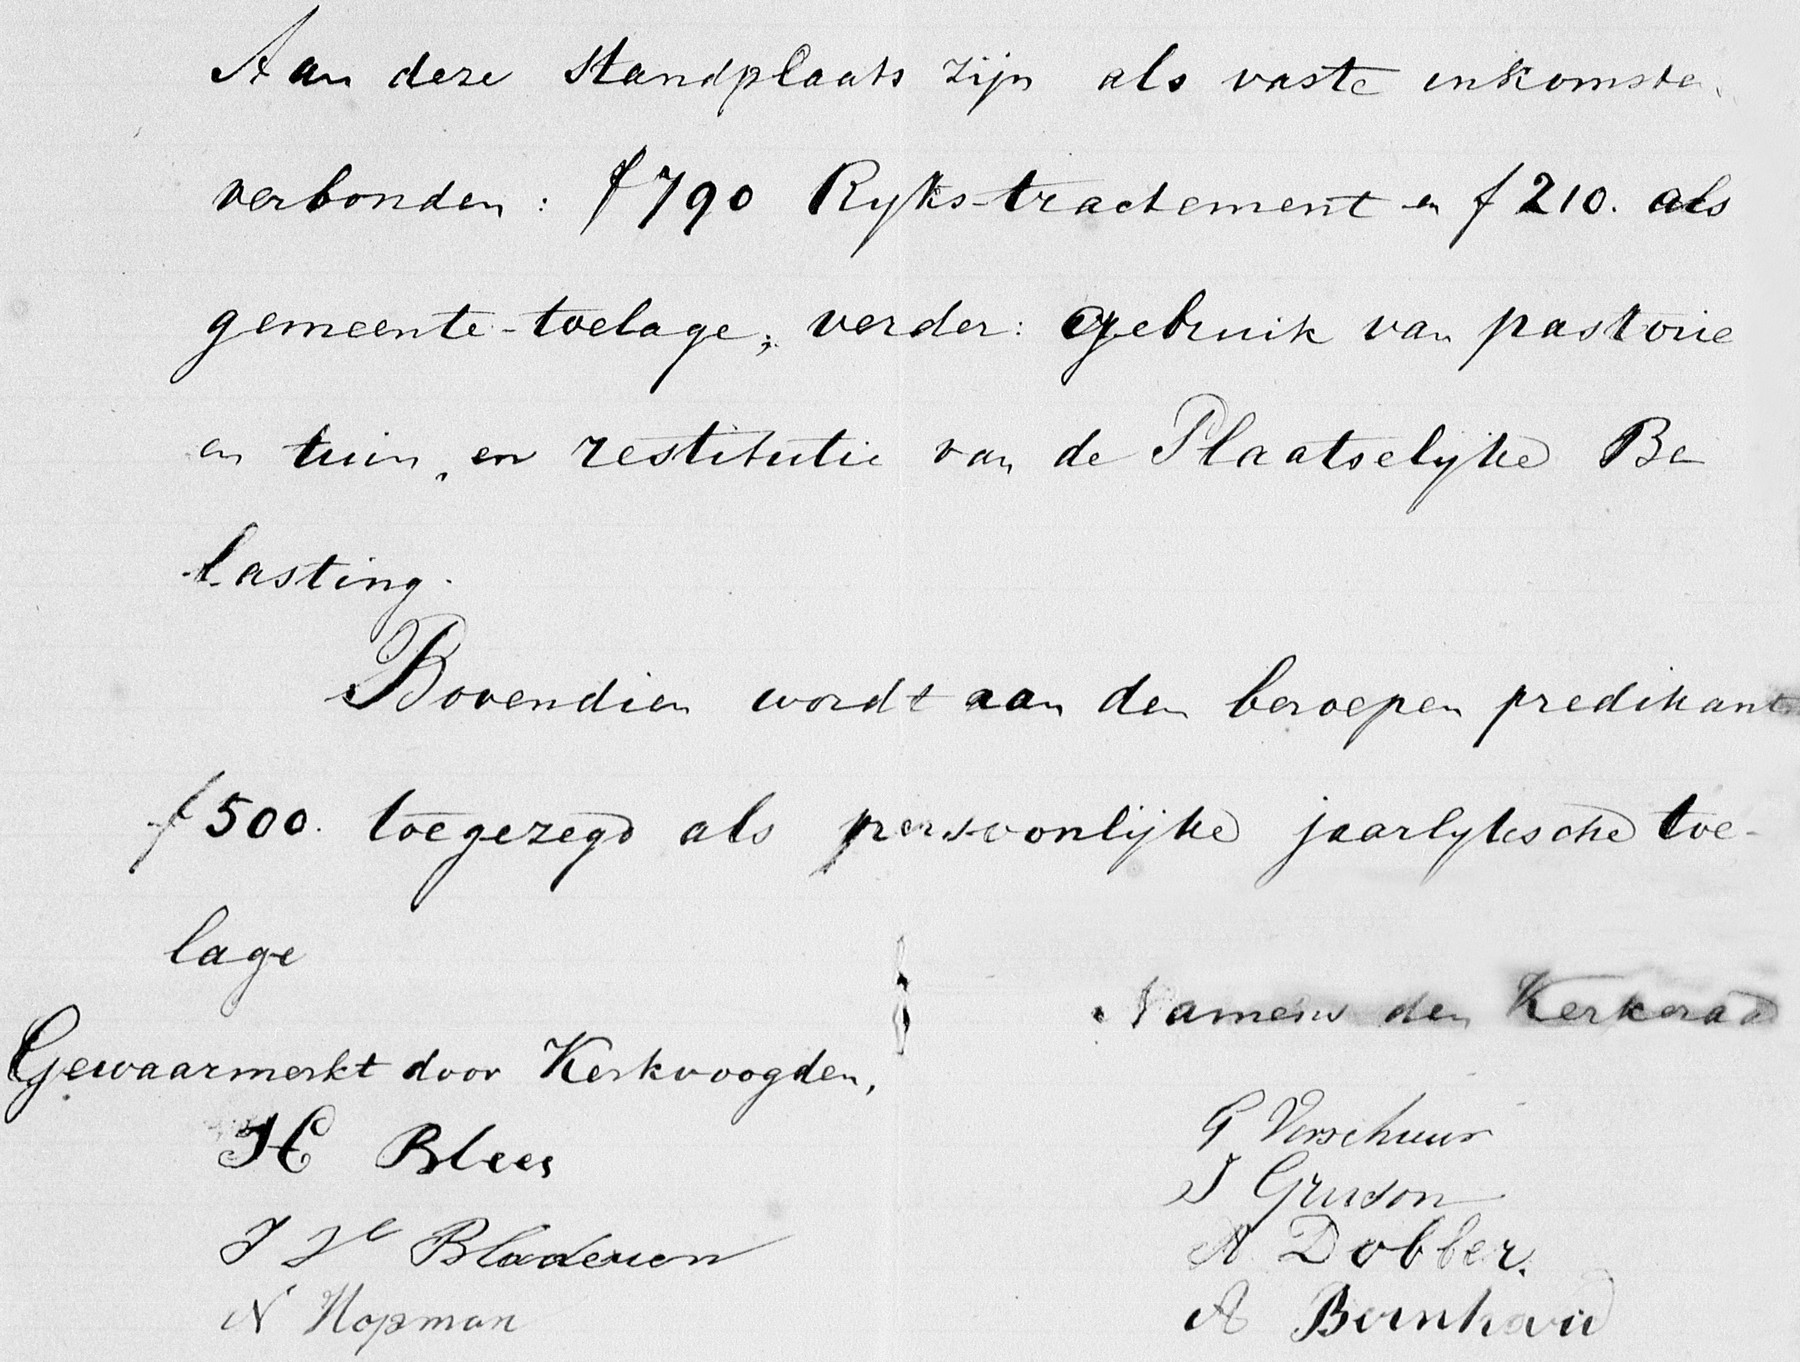 Aan deze standplaats zijn als vaste inkomsten
verbonden: f 790 Ryks-tractement en f 210. als
gemeente-toelage; verder: gebruik van pastorie
en tuin, en restitutie van de Plaatselijke Be
lasting.
Bovendien wordt aan den beroepen predikant
f 500. toegezegd als persoonlijke jaarlyksche toe-
lage
Namens den Kerkeraad
Gewaarmerkt door Kerkvoogden,
G Verschuur
H Blees
J Gruson
J Bladeren
A Dobber.
N Hopman
A Bernhard